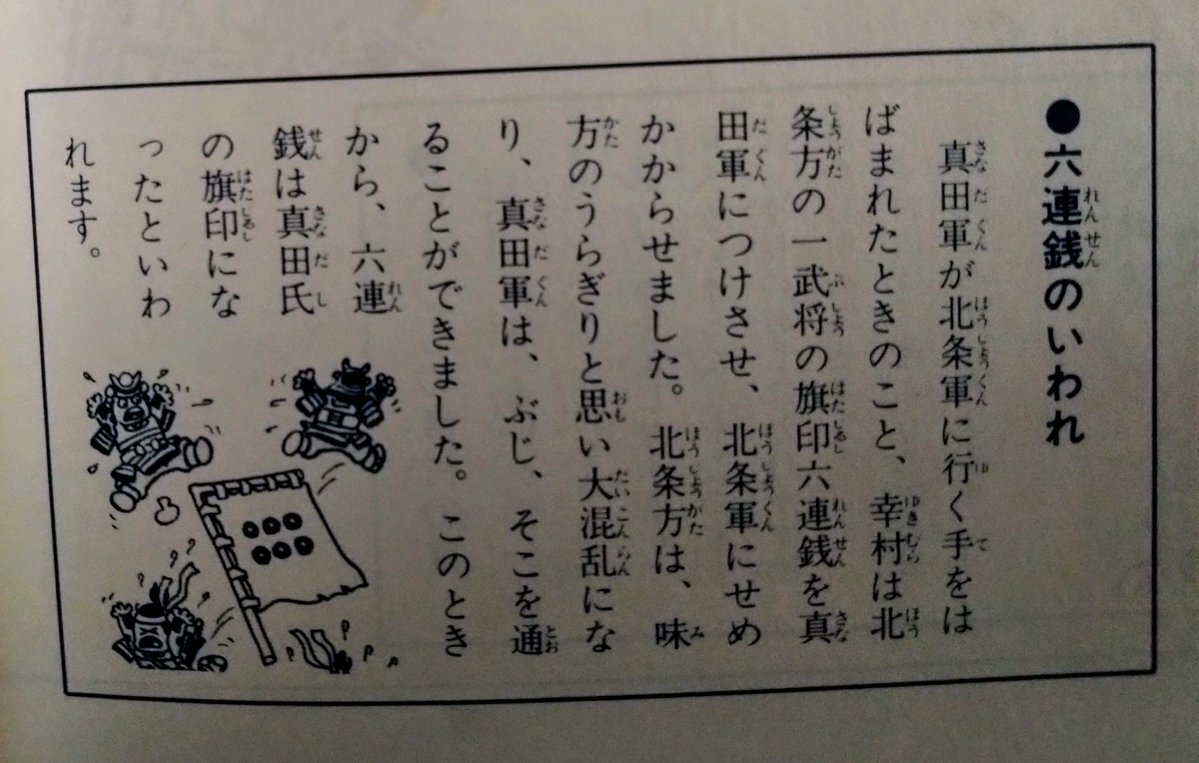 ●六連銭のいわれ
真田軍が北条軍に行く手をは
ばまれたときのこと、幸村は北
条方の一武将の旗印六連銭を真
田軍につけさせ、北条軍にせめ
かからせました。北条方は、味
方のうらぎりと思い大混乱にな
り、真田軍は、ぶじ、そこを通
ることができました。このとき
から、六連
銭は真田氏
の旗印にな
ったといわ
れます。